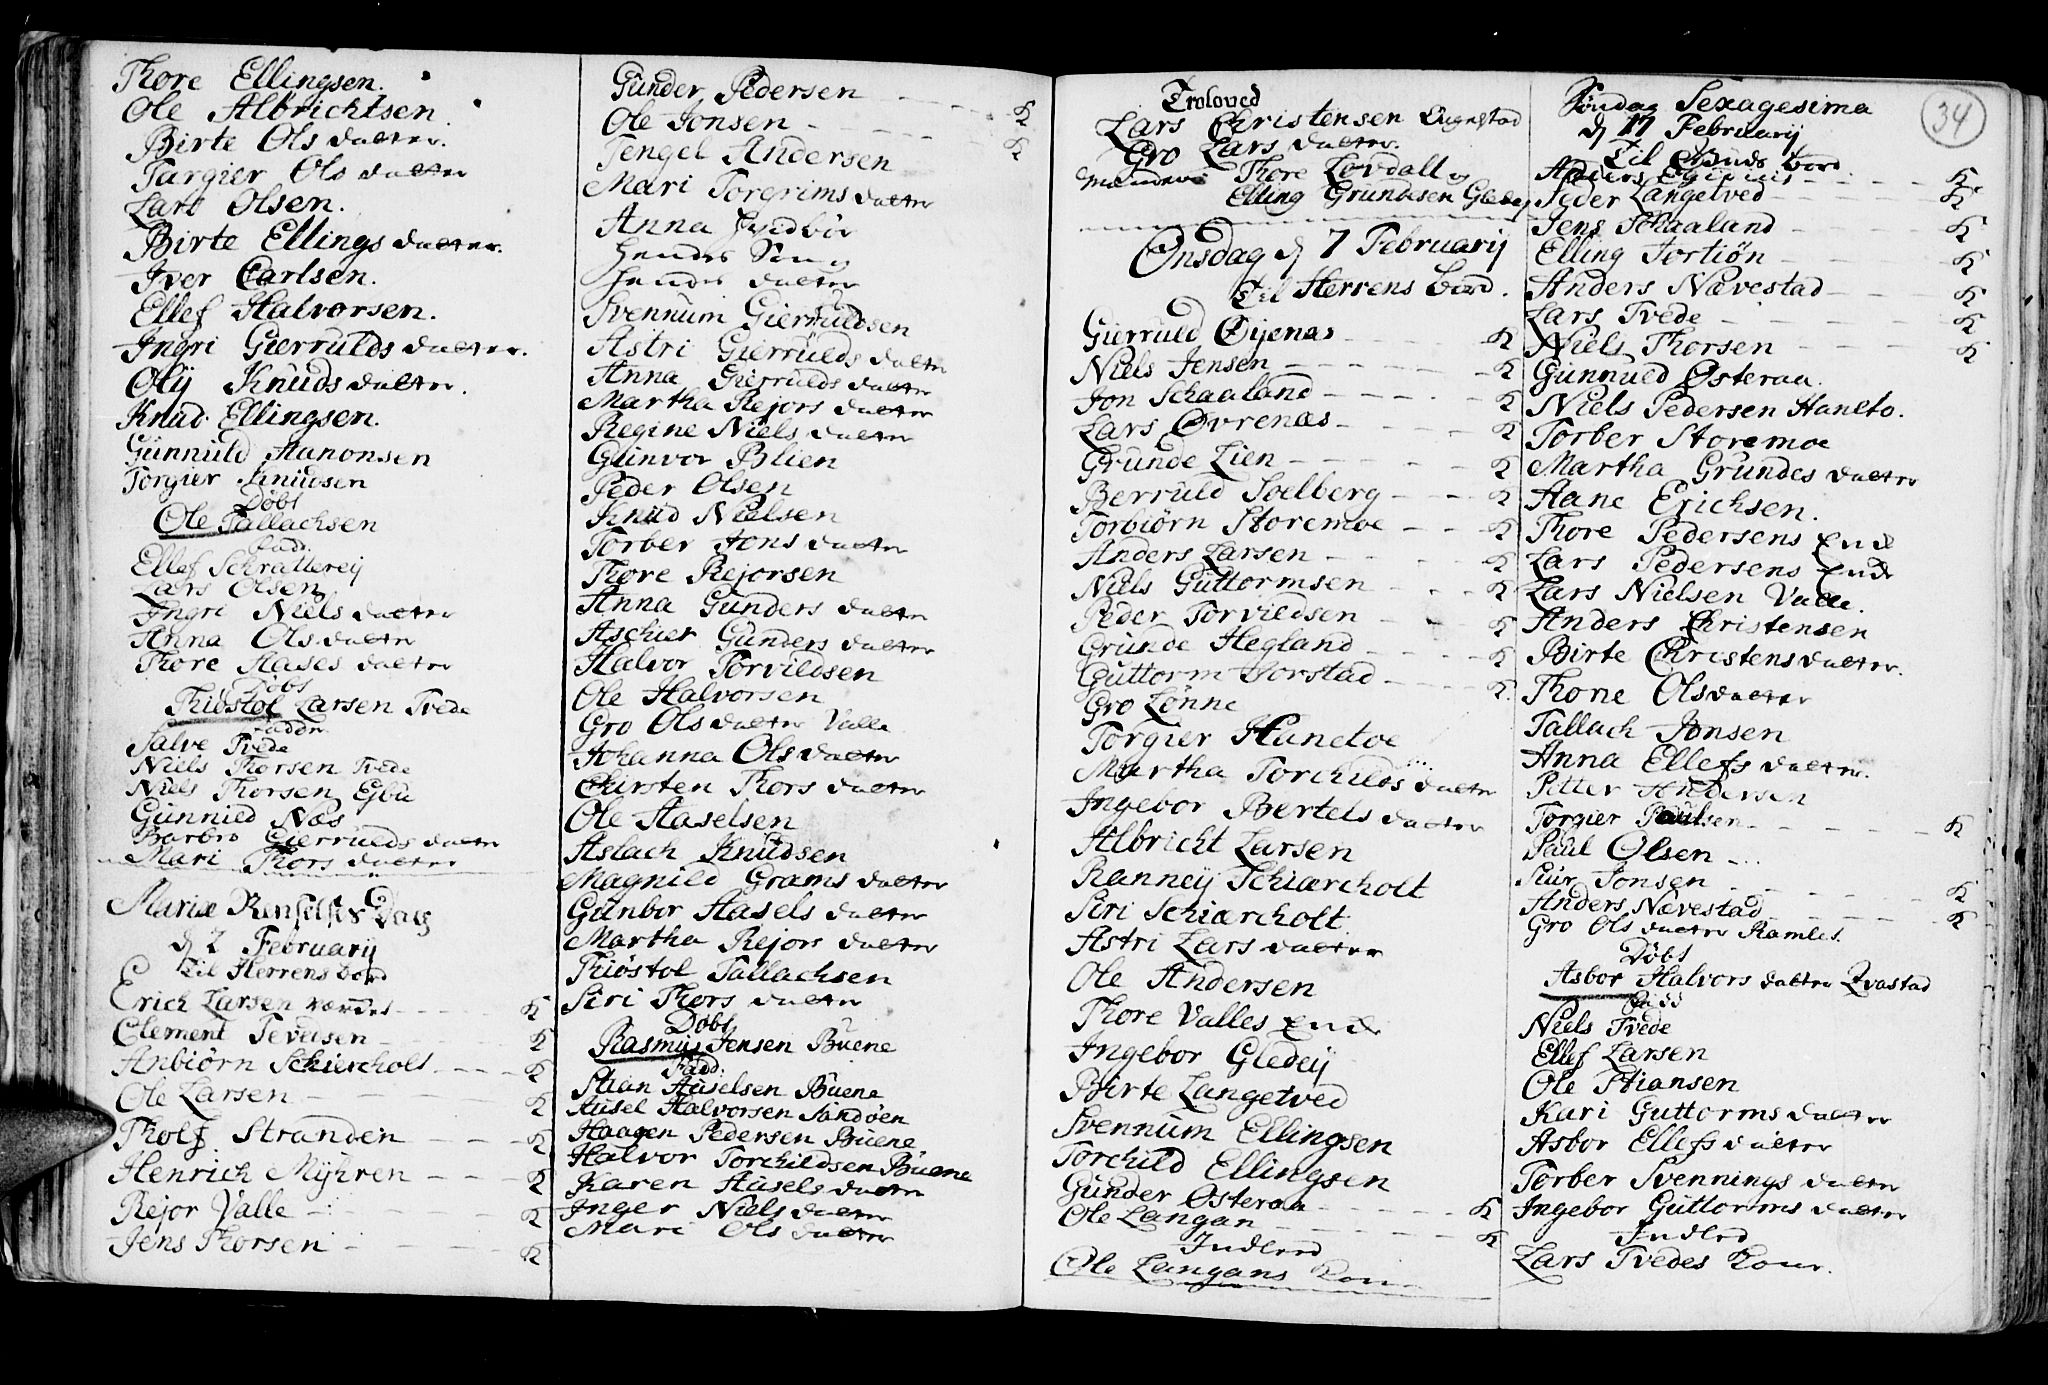 Thore Ellingsen.
Ole Albrichtsen.
Birte Ols datter.
Targier Ols datter
Lars Olsen.
Birte Ellings datter.
Iver Carlsen.
Ellef Halvorsen.
Ingri Gierrulds datter.
Olij Knuds datter.
Knud Ellingsen.
Gunnuld Aanonsen
Torgier Knudsen
Døbt
Ole Tallachsen
Fadr.
Ellef Schratterej
Lars Olsen
Ingri Niels datter
Anna Olsdatter
Thore Aases datter
Døbt
Thiøstol Larsen Tvede
Faddr.
Salve Tvede
Niels Thorsen Tvede
Niels Thorsen Egbu
Gunnild Næs
Barbro Gierrulds datter
Mari Thors datter
Mariæ Renselses Dag
d 2 Februarij
Til Herrens bord
Erich Larsen K
Clement Tevelsen K
Anbiørn Schiercholt K
Ole Larsen K
Tholf Stranden K
Henrich Mÿhren K
Rejor Valle K
Jens Thorsen K
Gunder Pedersen K
Ole Jonsen K
Tengel Andersen
Mari Torgrims datter
Anna
hendes Søn
hendes datter
Svennum Gierruldsen
Astri Gierrulds datter
Anna Gierrulds datter
Martha Rejors datter
Regine Niels datter
Gunvor Blien
Peder Olsen
Knud Nielsen
Torber Jons datter
Thore Rejorsen
Anna Gunders datter
Aschier Gunders datter
Halvor Torvildsen
Ole Halvorsen
Gro Ols datter Valle
Johanna Ols datter
Chirsten Thors datter
Ole Aaselsen
Aslach Knudsen
Magnild Grams datter
Gunbor Aasels datter
Martha Rejors datter
Thiøstol Tallachsen
Siri Thors datter
Døbt
Rasmus Jensen Buene
Fadd:
Stian Auselsen Buene
Ausel Halvorsen Sandøen
Haagen Pedersen Buene
Halvor Torchildsen Buene
Karen Ausels datter
Inger Niels datter
Mari Ols datter
Troloved
Lars Christensen
Gro Lars datter.
Thore Lovdall og
Elling Grundesen Gledej
Onsdag d 7 Februarij
Til Herrens bord.
Gierruld Øijenas K
Niels Jensen K
Jon Schaaland K
Lars Øvrenæs K
Grunde Lien K
Berruld Solberg K
Torbiørn Storemoe K
Anders Larsen K
Niels Guttormsen K
Peder Torvildsen K
Grunde Hegland K
Guttorm Horstad K
Gro Lønne
Torgier Hanetoe
Martha Torchilds datter
Ingebor Bertels datter
Albricht Larsen
Rannej Schiærcholt
Siri Schiærcholt
Astri Lars datter
Ole Andersen
Thore Valles Enke
Ingebor Gledeij
Birte Langetved
Svennum Ellingsen
Torchild Ellingsen
Gunder Østeraa K
Ole Langan K
Indleed
Ole Langans Kone
34
Søndag Sexagesima
d 17 Februarij
Til Guds bord
K
Peder Langetved K
Jens Schaaland K
Elling Tortiøn K
Anders Nævestad K
Lars Tvede K
Niels Thorsen K
Gunnuld Østeraa.
Niels Pedersen Haneto.
Torber Storemoe
Martha Grundes datter
Aane Erichsen.
Thore Pedersens Enke
Lars Pedersens Enke
Lars Nielsen Valle.
Anders Christensen
Birte Christensdatter.
Thone Olsdatter
Tallach Jonsen
Anna Ellefs datter.
Petter Andersen
Torgier Paulsen K
Paul Olsen
Siur Jonsen K
Anders Nævestad K
Gro Ols datter Ramles.
Døbt
Asbor Halvors datter Qvastad
Fadd
Niels Tvede
Ellef Larsen
Ole Stiansen
Kari Guttorms datter
Asbor Ellefs datter
Torber Svennings datter
Ingebor Guttorms datter
Indleed
Lars Tvedes Kone.